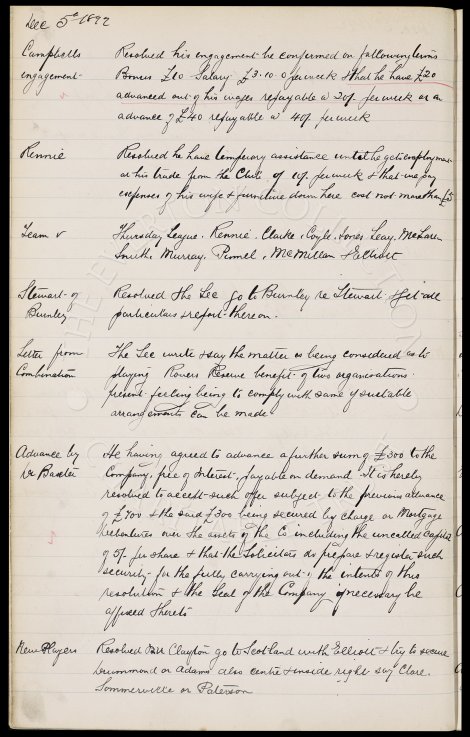 Dec 5th 1892
Campbells engagement
Resolved his engagement be confirmed on following terms
Bonus £10 Salary £3.10.0 per week & that he have £20
advanced out of his wages repayable @ 20/- per week or an
advance of £40 repayable @ 40/- per week
Rennie
Resolved he have temporary assistance until he gets employment
at his trade from the Club of per week & that we pay
expenses of his wife & furniture down here cost not more than £5
Team v
Thursday League. Rennie, Clarke, Coyle, Jones, Leay, McLaren
Smith, Murray, Pinnel, McMillan & Elliott
Stewart of Burnley
Resolved the Sec go to Burnley re Stewart & get all
particulars & report thereon.
Letter from Combination
The Sec write & say the matter is being considered as to
playing Rovers Reserve benefit of two organisations.
present feeling being to comply with same if suitable
arrangements can be made
Advance by Dr Baxter
He having agreed to advance a further sum of £300 to the
Company, free of Interest, payable on demand. It is hereby
resolved to accept such offer subject to the previous advance
of £700 & the said £300 being secured by charge or Mortgage
Debentures over the assets of the Co including the uncalled capital
of 5/- per share & that the Solicitors do prepare & register such
security for the fully carrying out of the intents of this
resolution & the Seal of the Company if necessary be
affixed thereto
New Players
Resolved Mr Clayton go to Scotland with Elliott & try to secure
Drummond or Adams also centre & inside right say Clare.
Sommerville or Paterson